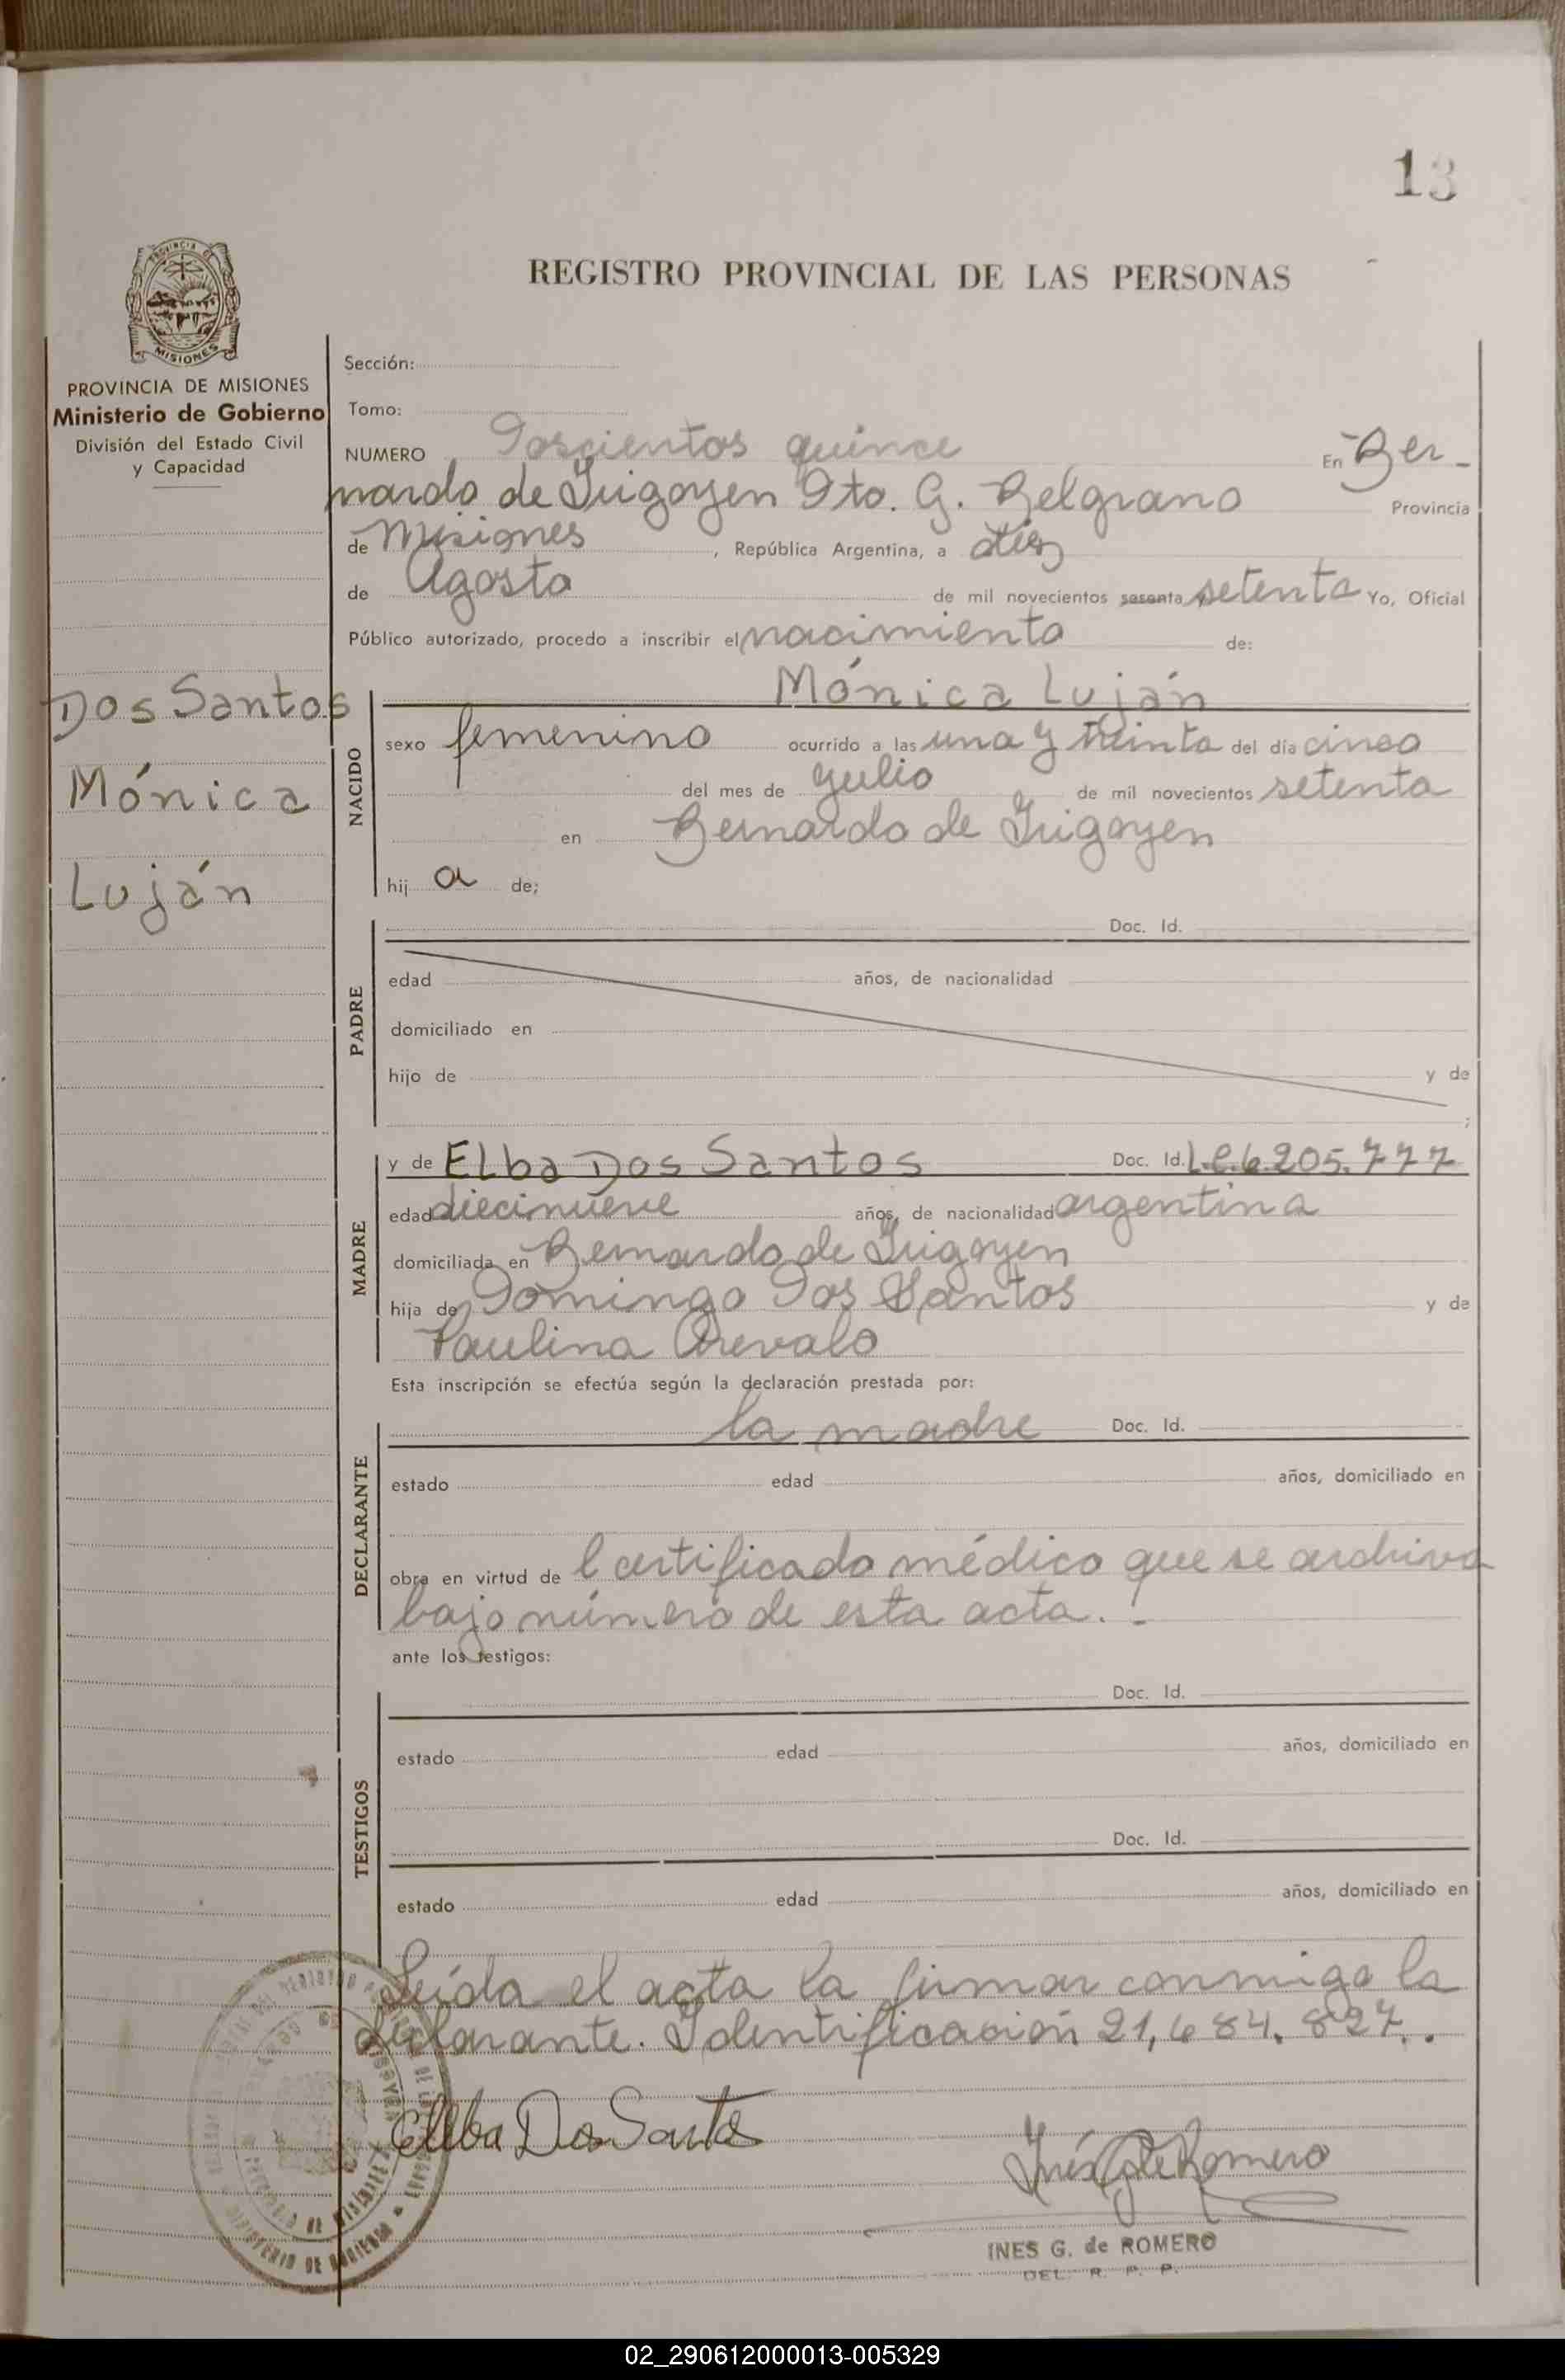 13
REGISTRO PROVINCIAL DE LAS PERSONAS
PROVINCIA DE MISIONES
Ministerio de Gobierno
División del Estado Civil
y Capacidad
Sección:
Tomo:
NUMERO Doscientos quince En Ber-
nardo de Irigoyen Dto. G. Belgrano Provincia
de Misiones, República Argentina, a diez
de Agosto de mil novecientos sesenta y setenta Yo, Oficial
Público autorizado, procedo a inscribir el nacimiento de:
Dos Santos
Mónica
Luján
NACIDO
Mónica Luján
sexo femenino ocurrido a las una y treinta del día cinco
del mes de julio de mil novecientos setenta
en Bernardo de Irigoyen
hij a de;
PADRE
Doc. Id.
edad años, de nacionalidad
domiciliado en
hijo de y de
;
MADRE
y de Elba Dos Santos Doc. Id. L.C. 6.205.777
edad diecinueve años, de nacionalidad argentina
domiciliada en Bernardo de Irigoyen
hija de Domingo Dos Santos y de
Paulina Arevalo
Esta inscripción se efectúa según la declaración prestada por:
DECLARANTE
la madre Doc. Id.
estado edad años, domiciliado en
obra en virtud de l certificado médico que se archiva
bajo número de esta acta.
ante los testigos:
TESTIGOS
Doc. Id.
estado edad años, domiciliado en
Doc. Id.
estado edad años, domiciliado en
Leída el acta la firman conmigo la
declarante. Identificación 21,684.827.
Elba Dos Santos
Inés G de Romero
INES G. de ROMERO
DEL. R. P. P.
02_290612000013-005329